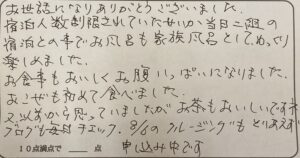 お世話になりありがとうございました。
宿泊人数制限されていたせいか当日二組の
宿泊との事でお風呂も家族風呂としてゆっくり
楽しめました。
お食事もおいしくお腹いっぱいになりました。
おこぜも初めて食べました。
又以前から思っていましたがお茶もおいしいですネ
ブログも毎日チェック。8/5のクルージングもとりあえず
10点満点で 点 申し込み中です